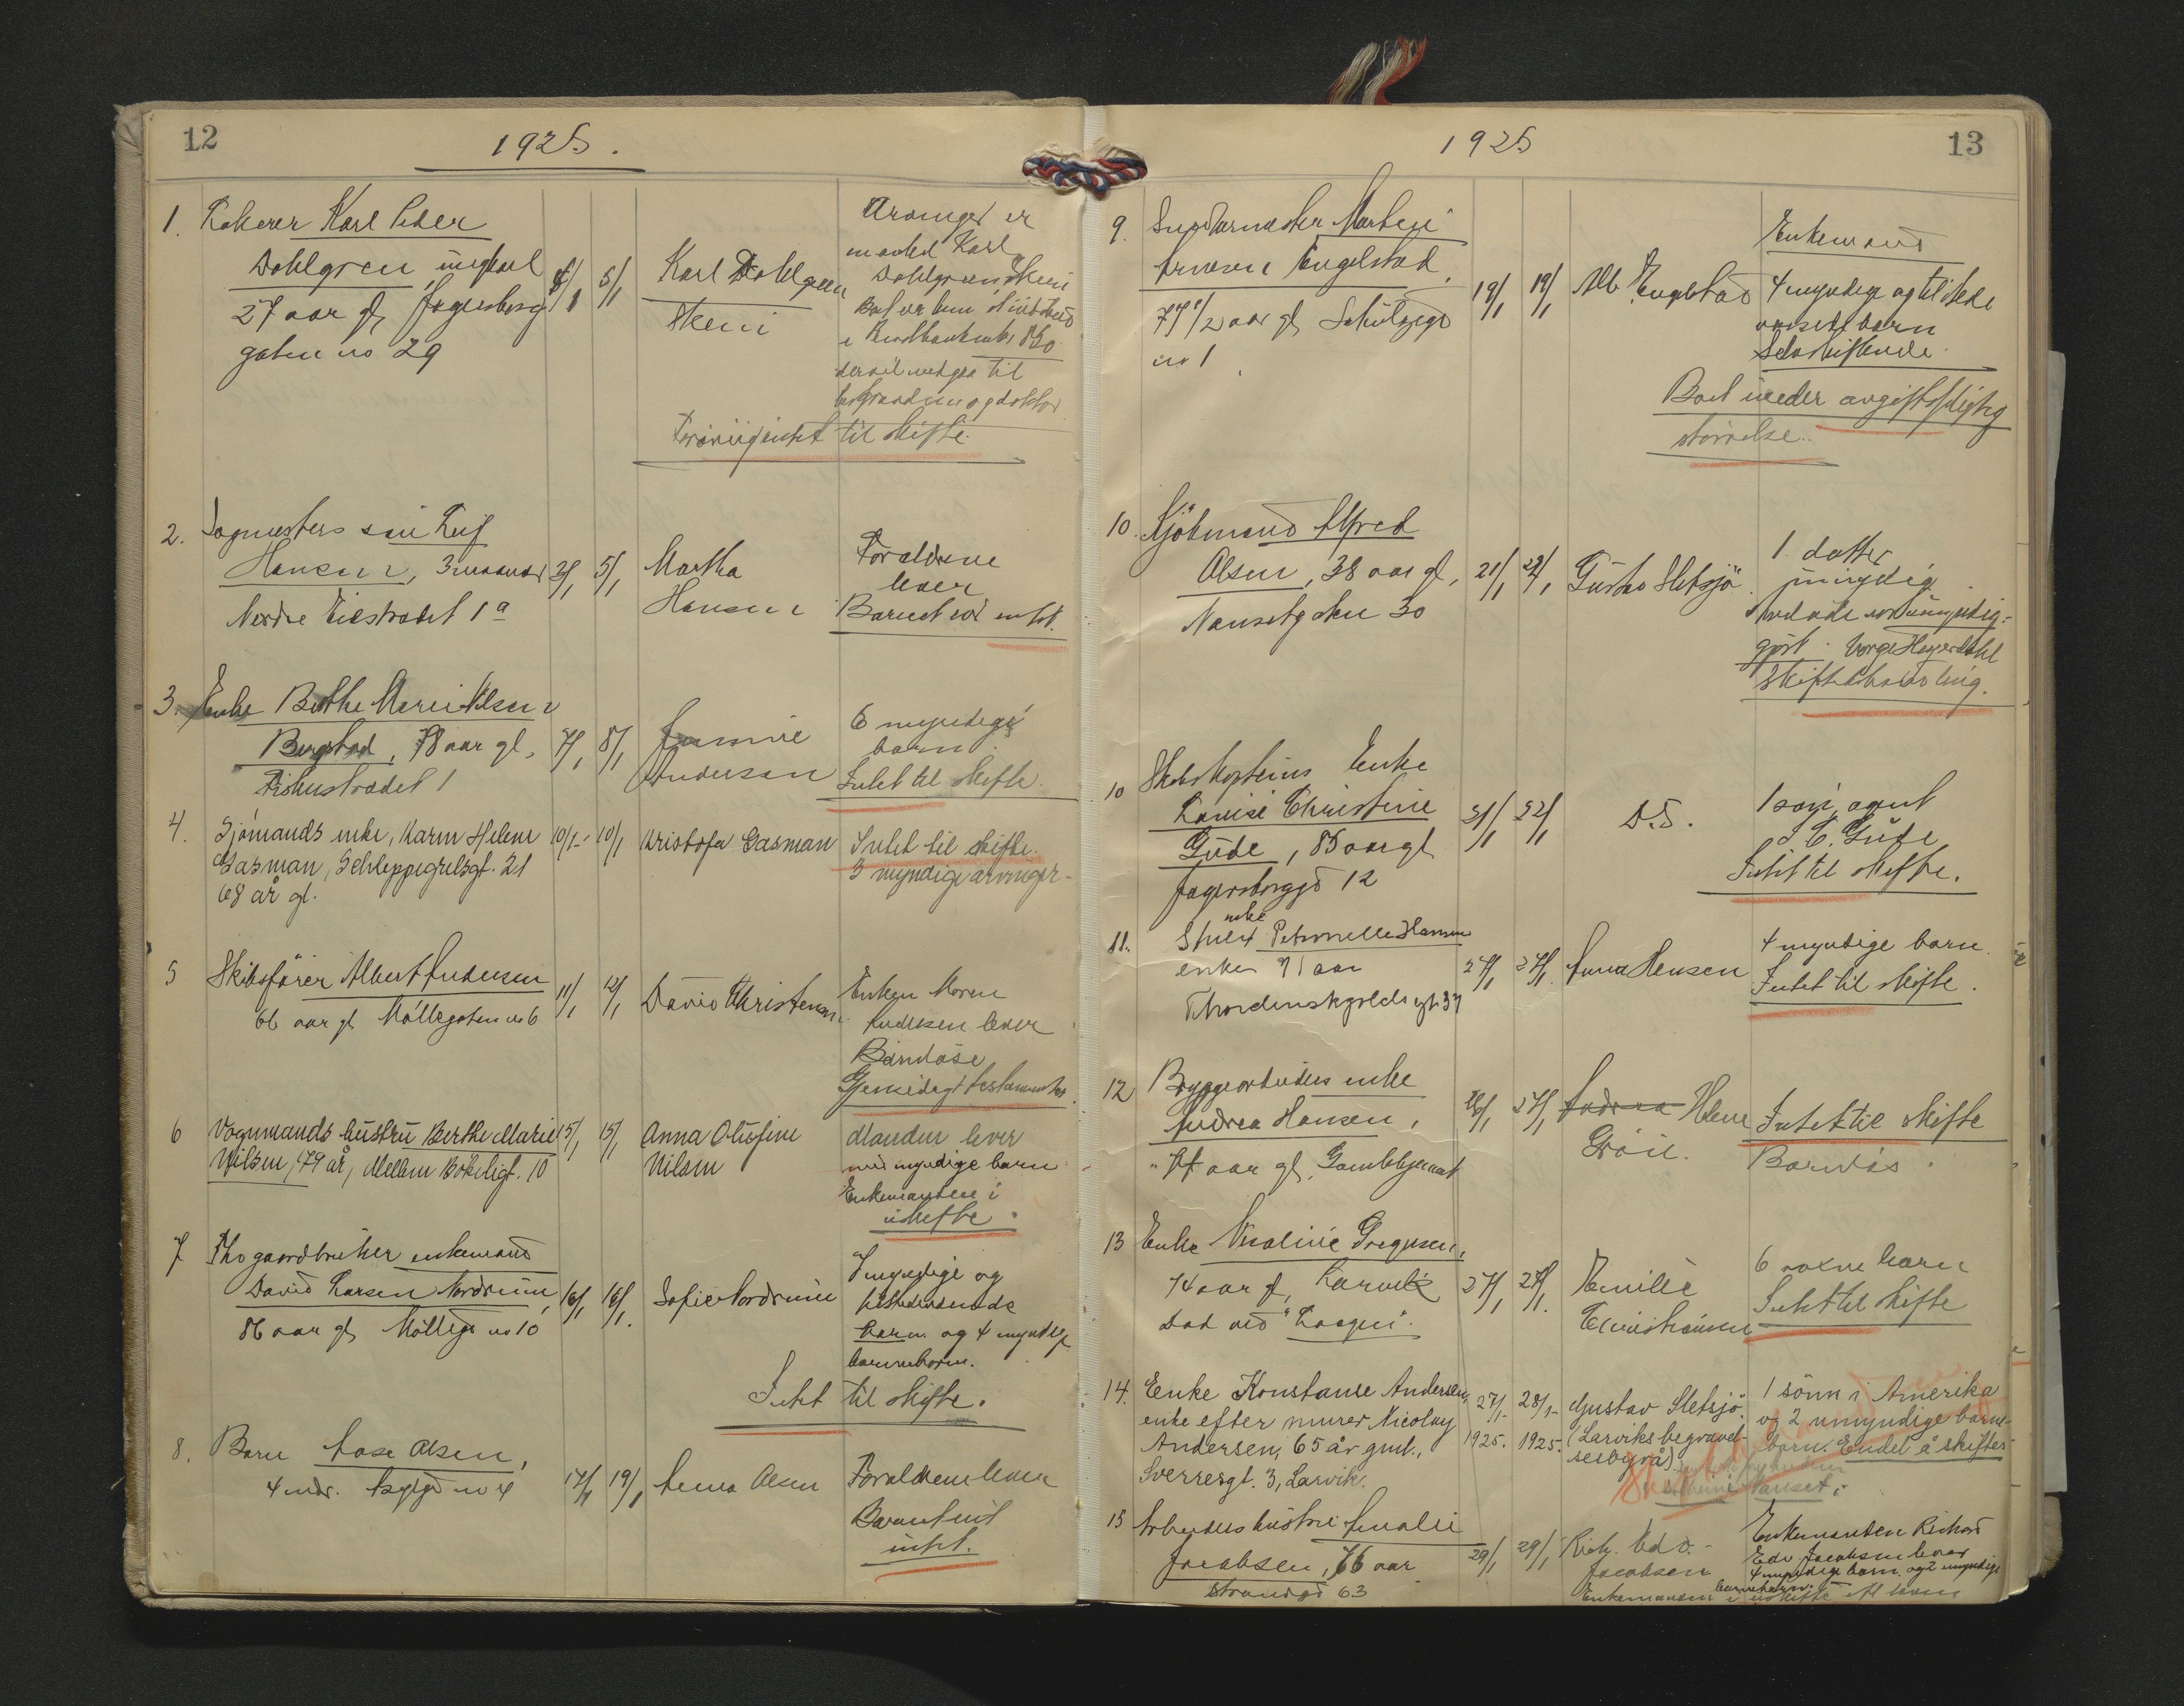 12
1925.
1. Karl Peder
Dahlgren, ungkarl
27 aar gl, Jegersborg
gaten no 29
5/1
Karl Dahlgren
Skien
Arvinger er
Karl
Dahlgren, Skien
850
til
begravelse og doktor
intet til skifte.
2. Sagmesters sön Leif
Hansen, 3 maaneder
Nordre 1a
5/1
Martha
Hansen
Foraldrene
lever
Barnet eied intet.
3. Enke Berthe Marie Nilsen
Bergstad, 78 aar gl,
Fiskestrædet 1
7/1 8/1
Andersen
6 myndige
barn.
Intet til skifte.
4. Sjömands enke, Karen Helene
Gasman, Schleppegrelsgt. 21
68 år gl.
10/1- 10/1
Kristofa Gasman
Intet til skifte.
3 myndige arvinger-
5 Skibsförer Albert Andersen
66 aar gl Möllegaten no 6
11/1 12/1
David Christensen
Enken Maren
Andersen lever
Barnlöse
Gjensidigt testamente.
6 Vognmands hustru Berthe Marie
Nilsen, 79 år, Mellem Bökeligt. 10
15/1 15/1
Anna Olufine
Nilsen
Manden lever
myndige barn
Enkemanden i
uskifte.
7 Fhv gaardbruker enkemand
David Larsen Nordrum,
86 aar gl Möllegt no 10
16/1 16/1.
Sofie Nordrum
7 myndige og
tilstedeværende
barn og 4 myndige
barnebarn.
Intet til skifte.
8. Barn Aase Olsen,
4 mdr. no 4
17/1 19/1
Anna Olsen
Foraldrene lever
Barnet eied
intet.
1925
13
9. Martin
Arnesen Engelstad
74 1/2 aar gl Schultzegt
no 1
19/1 19/1
Alb. Engelstad
Enkemand
4 myndige og tilstede
værende barn
Selvskiftende.
Boet under avgiftspligtig
störrelse.
10. Sjömand Alfred
Olsen, 38 aar gl,
Nansetgaten 30
21/1 22/1
Gustav Sletsjö
1 datter
umyndig
Avdöde var umyndig-
gjort. Verge Heyerdahl
Skiftebehandling.
10 Skibskapteins Enke
Louise Christine
Gude, 85 aar gl
Jegersborggd 12
21/1 22/1
D.S.
1 sön, agent
J. C. Gude
Intet til skifte.
11. enke
Petronelle Hansen
enke 71 aar
Thordenskjolds gt. 37
27/1 27/1.
Anna Hansen
4 myndige barn
Intet til skifte.
12 Bryggearbeiders enke
Andrea Hansen,
aar gl, Gamlehjemmet
26/1 27/1
Andrea Helene
Intet til skifte
Barnlös.
13 Enke Nicoline Gregersen,
74 aar gl, Larvik
Död ved "
27/1 27/1.
Emilie
Christiansen
6 voxne barn
Intet til skifte
14. Enke Konstanse Andersen,
enke efter murer Nicolay
Andersen, 65 år gml.,
Sverresgt. 3, Larvik.
27/1- 28/1-
1925. 1925.
Gustav Sletsjö.
(Larviks begravel-
sesbyrå).
1 sönn i Amerika
og 2 umyndige barne-
barn. Endel å skifte-
Nanset.
15 Arbeiders hustru Amalie
Jacobsen, 76 aar
Strandgd 63
29/1 29/1
Rich. Edv.
Jacobsen
Enkemanden Richard
Edv Jacobsen lever
4 myndige barn og 2 umyndige
barnebarn.
Enkemanden i uskifte